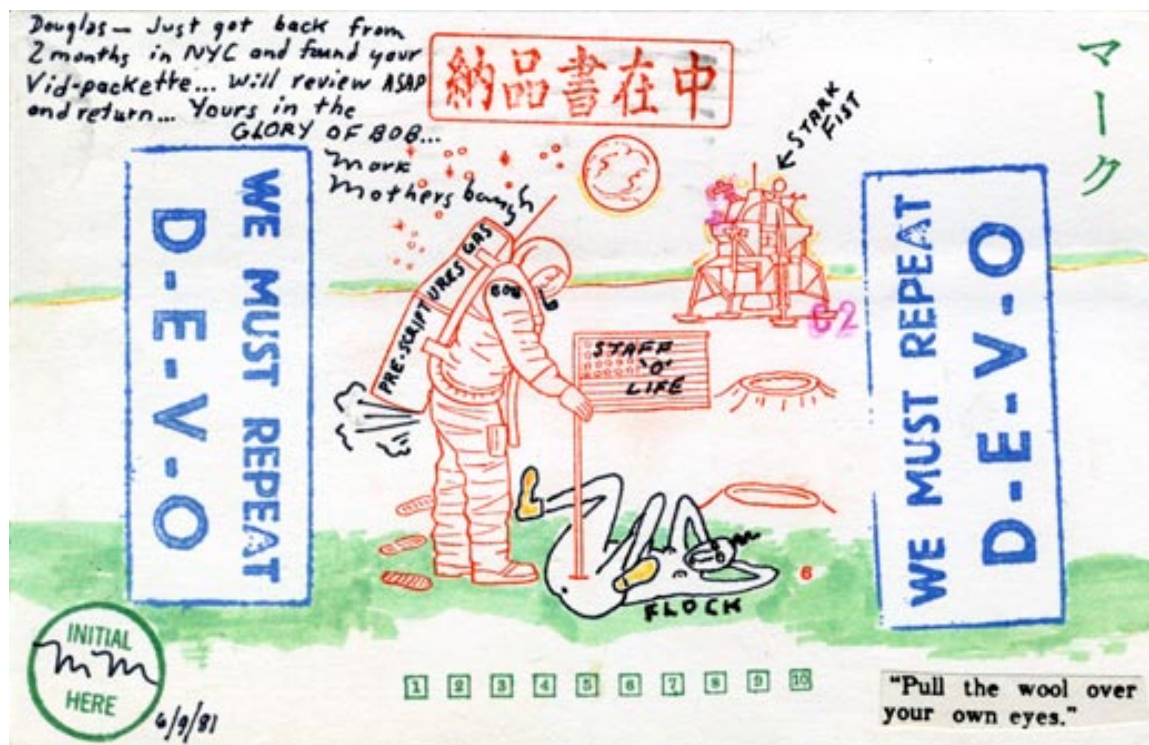 Douglas — Just got back from
2 months in NYC and found your
Vid-packette... Will review ASAP
and return... Yours in the
GLORY OF BOB...
Mark
Mothersbaugh
納品書在中
マーク
STARK
FIST
WE MUST REPEAT
D-E-V-O
PRE-SCRIPTURES GAS
BOB
62
STAFF
'O'
LIFE
WE MUST REPEAT
D-E-V-O
6
FLOCK
INITIAL
mm
HERE
6/9/81
1 2 3 4 5 6 7 8 9 10
"Pull the wool over
your own eyes."